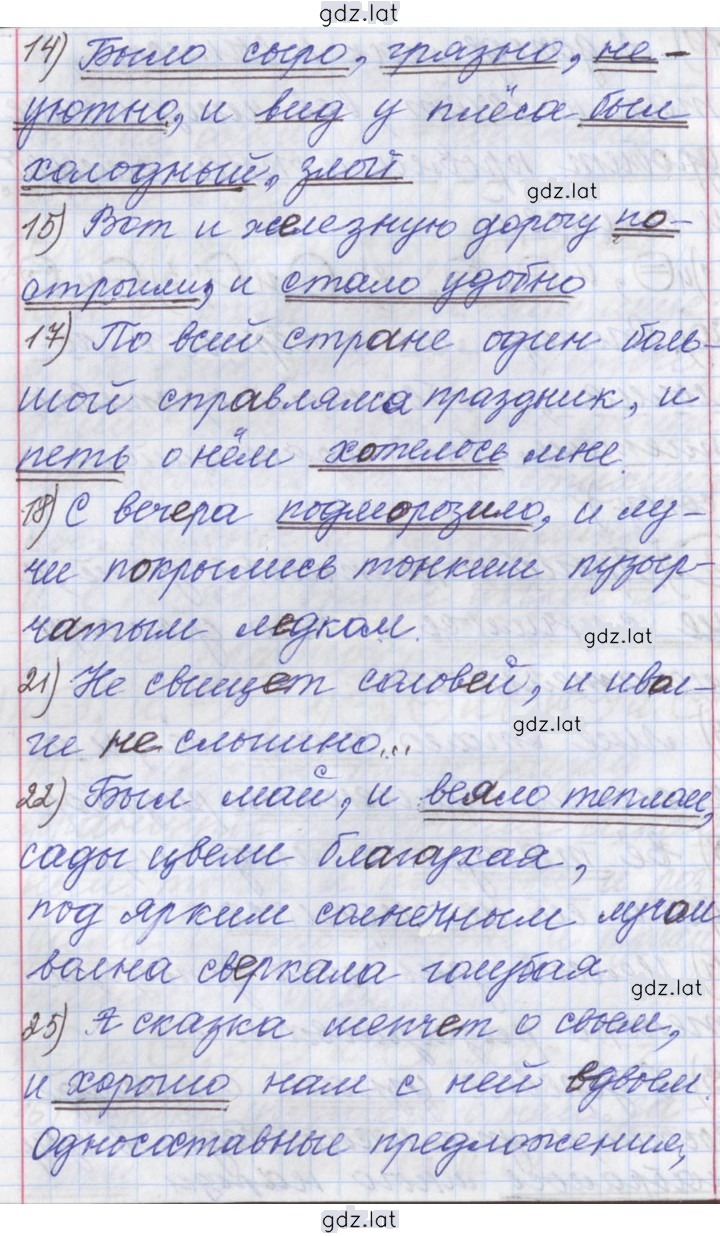 gdz.lat
14) Было сыро, грязно, не-
уютно, и вид у плёса был
холодный, злой
gdz.lat
15) Вот и железную дорогу по-
строили, и стало удобно
17) По всей стране один боль-
шой справляла праздник, и
петь о нём хотелось мне.
18) С вечера подморозило, и лу-
жи покрылись тонким пузыр-
чатым ледком.
gdz.lat
21) Не свищет соловей, и ивол-
ги не слышно...
gdz.lat
22) Был май, и веяло теплом,
сады цвели благоухая,
под ярким солнечным лучом
волна сверкала голубая
gdz.lat
25) А сказка шепчет о своем,
и хорошо нам с ней вдвоем.
Односоставные предложения,
gdz.lat